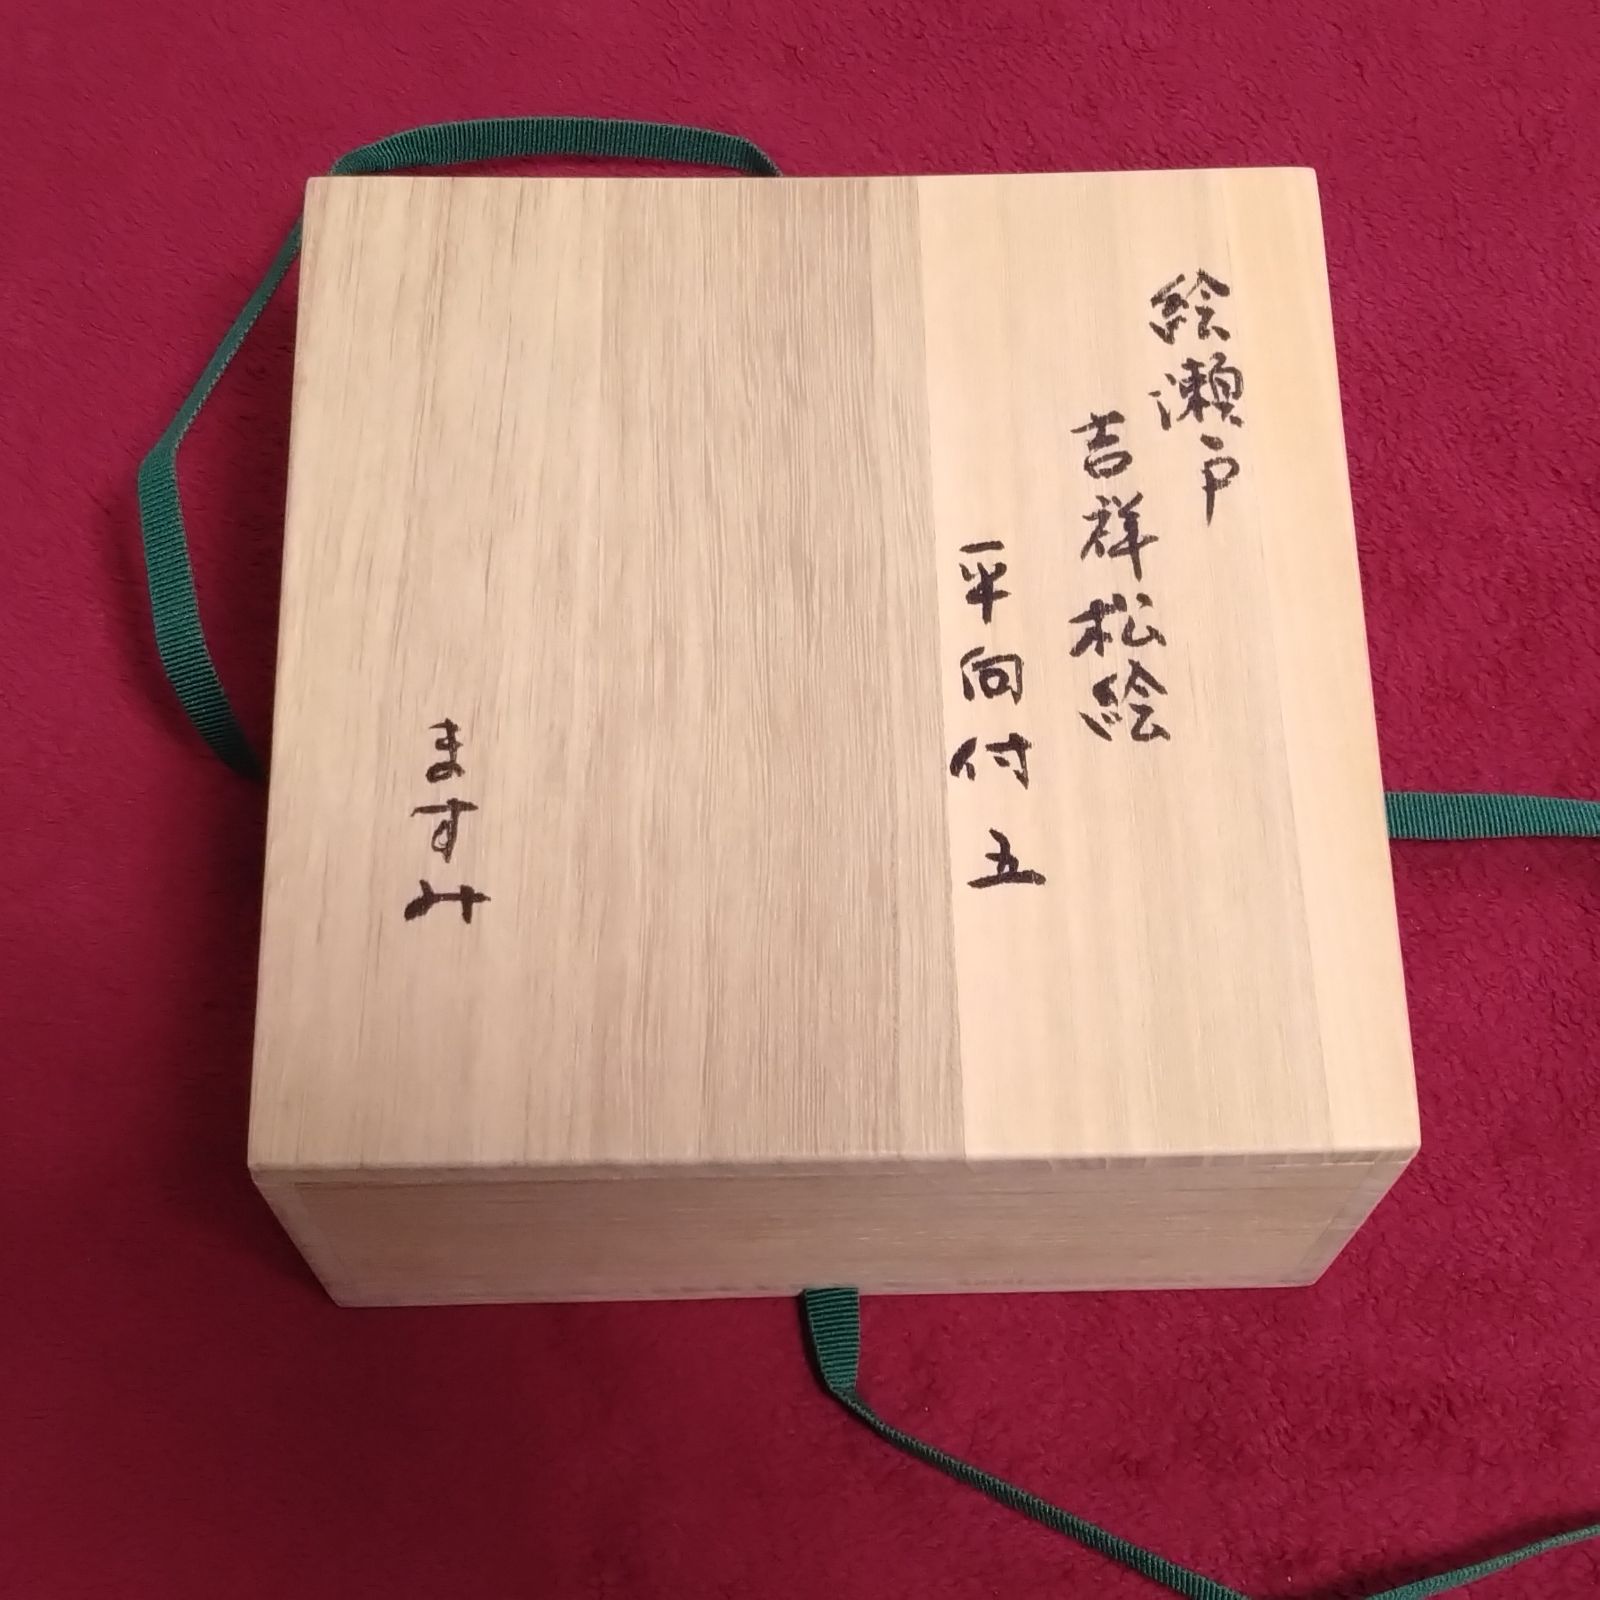 絵瀬戸
吉祥松絵
平向付 五
ますみ